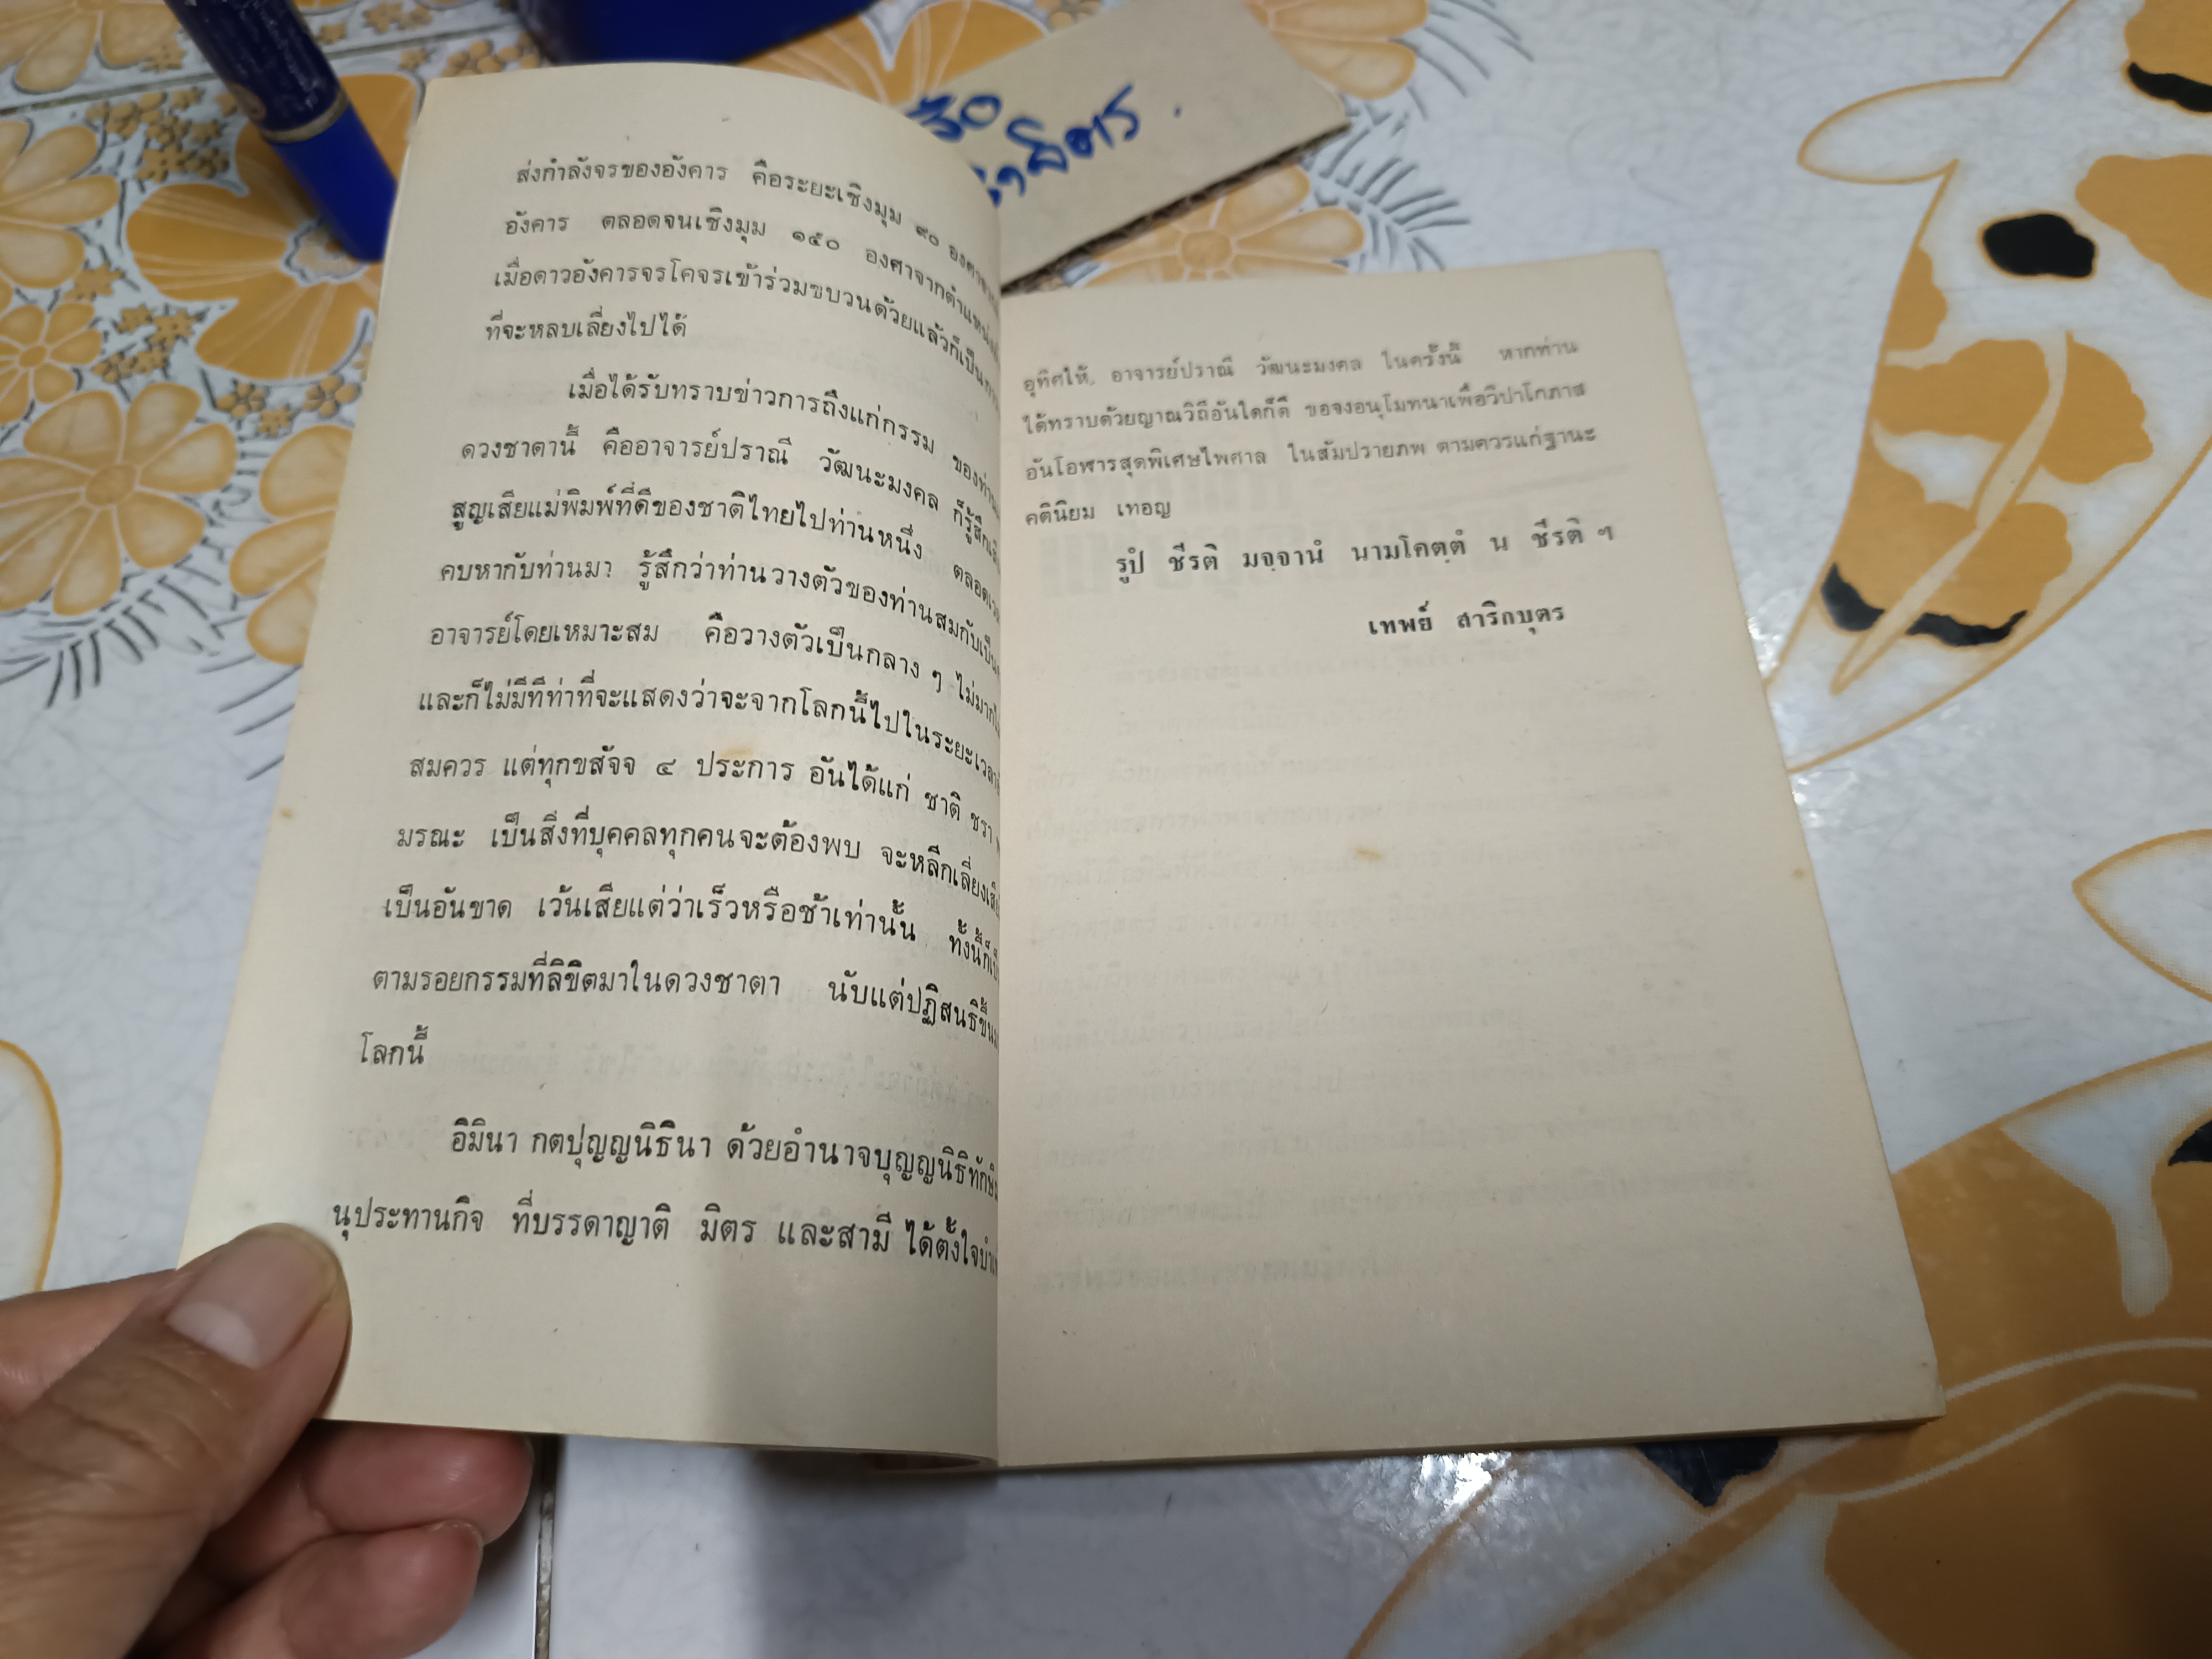 ส่งกำลังจรของอังคาร คือระยะเชิงมุม ๙๐ องศาจาก
อังคาร ตลอดจนเชิงมุม ๑๕๐ องศาจากตำแหน่ง
เมื่อดาวอังคารจรโคจรเข้าร่วมขบวนด้วยแล้วก็เป็น
ที่จะหลบเลี่ยงไปได้
เมื่อได้รับทราบข่าวการถึงแก่กรรม ของท่าน
ดวงชาตานี้ คืออาจารย์ปราณี วัฒนะมงคล ก็รู้สึก
สูญเสียแม่พิมพ์ที่ดีของชาติไทยไปท่านหนึ่ง
คบหากับท่านมา รู้สึกว่าท่านวางตัวของท่านสมกับเป็น
อาจารย์โดยเหมาะสม คือวางตัวเป็นกลาง ๆ ไม่มาก
และก็ไม่มีทีท่าที่จะแสดงว่าจะจากโลกนี้ไปในระยะเวลา
สมควร แต่ทุกขสัจจ ๔ ประการ อันได้แก่ ชาติ ชรา
มรณะ เป็นสิ่งที่บุคคลทุกคนจะต้องพบ จะหลีกเลี่ยง
เป็นอันขาด เว้นเสียแต่ว่าเร็วหรือช้าเท่านั้น ทั้งนี้ก็
ตามรอยกรรมที่ลิขิตมาในดวงชาตา นับแต่ปฏิสนธิขึ้น
โลกนี้
อิมินา กตปุญญนิธินา ด้วยอำนาจบุญญนิธิ
นุประทานกิจ ที่บรรดาญาติ มิตร และสามี ได้ตั้งใจ
อุทิศให้ อาจารย์ปราณี วัฒนะมงคล ในครั้งนี้ หากท่าน
ได้ทราบด้วยญาณวิถีอันใดก็ดี ขอจงอนุโมทนาเพื่อวิปาโกภาส
อันโอฬารสุดพิเศษไพศาล ในสัมปรายภพ ตามควรแก่ฐานะ
คตินิยม เทอญ
รูปํ ชีรติ มจฺจานํ นามโคตฺตํ น ชีรติ ฯ
เทพย์ สาริกบุตร